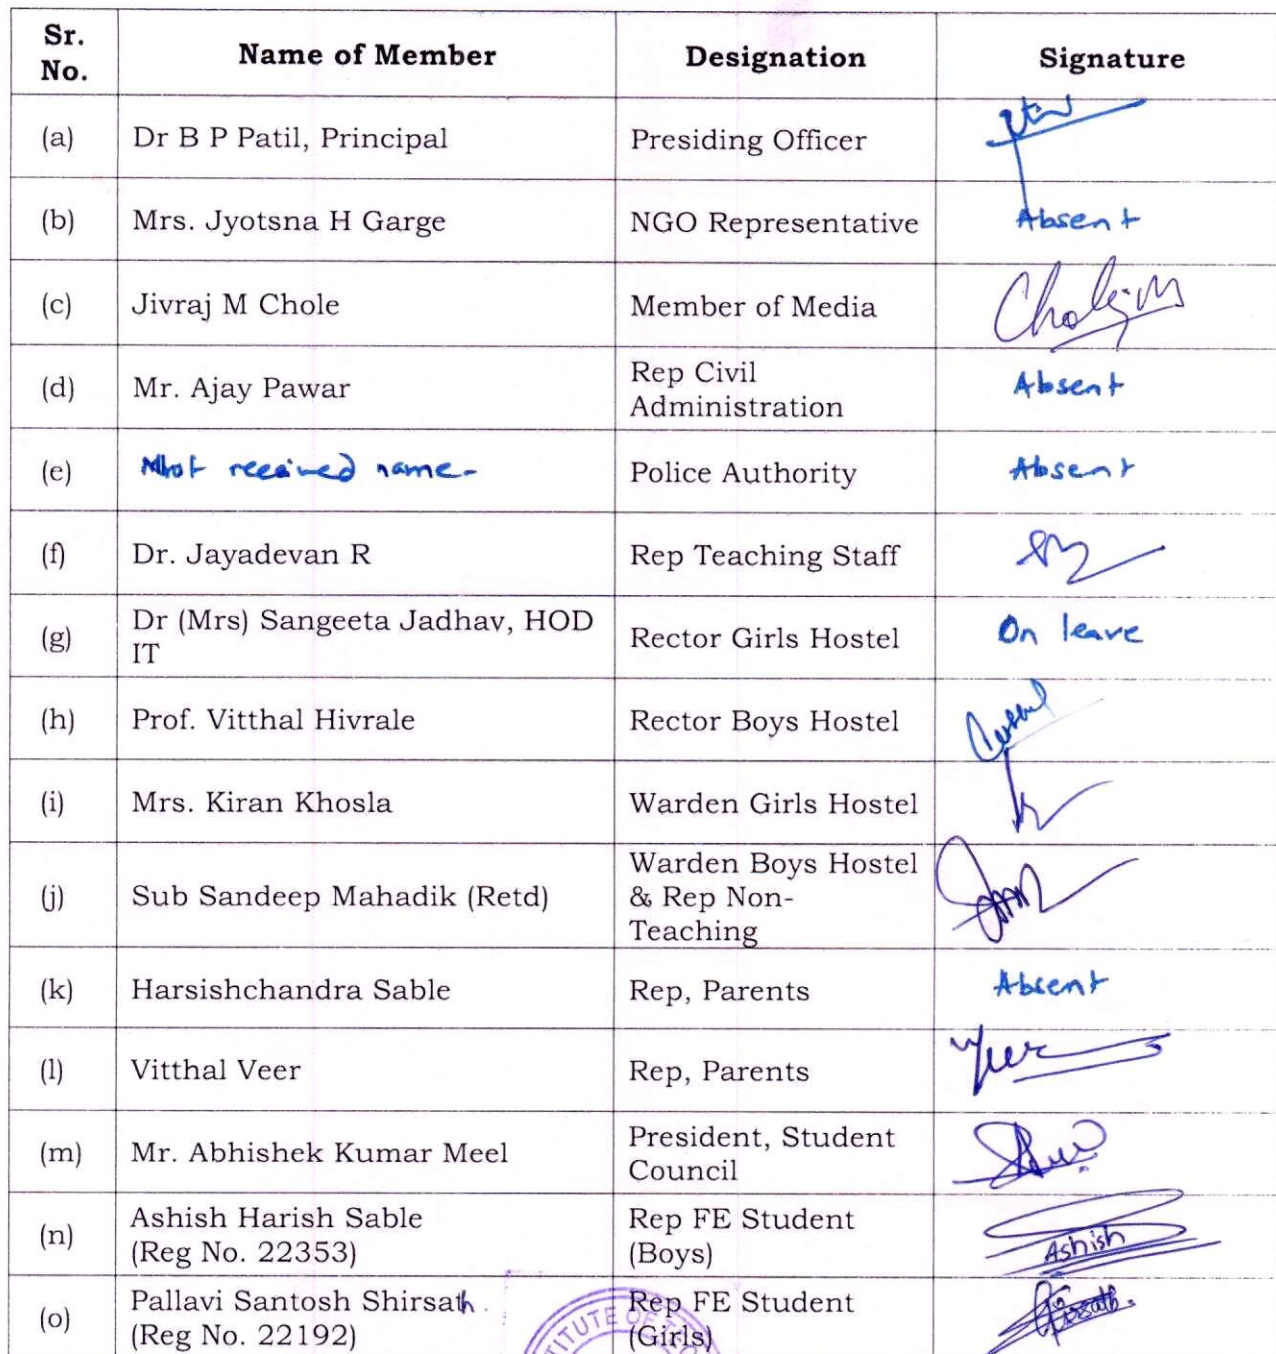 Sr. No. Name of Member Designation Signature
(a) Dr B P Patil, Principal Presiding Officer
(b) Mrs. Jyotsna H Garge NGO Representative Absent
(c) Jivraj M Chole Member of Media
(d) Mr. Ajay Pawar Rep Civil Administration Absent
(e) Not received name- Police Authority Absent
(f) Dr. Jayadevan R Rep Teaching Staff
(g) Dr (Mrs) Sangeeta Jadhav, HOD IT Rector Girls Hostel On leave
(h) Prof. Vitthal Hivrale Rector Boys Hostel
(i) Mrs. Kiran Khosla Warden Girls Hostel
(j) Sub Sandeep Mahadik (Retd) Warden Boys Hostel & Rep Non-Teaching
(k) Harsishchandra Sable Rep, Parents Absent
(l) Vitthal Veer Rep, Parents Veer
(m) Mr. Abhishek Kumar Meel President, Student Council
(n) Ashish Harish Sable (Reg No. 22353) Rep FE Student (Boys) Ashish
(o) Pallavi Santosh Shirsath (Reg No. 22192) Rep FE Student (Girls)